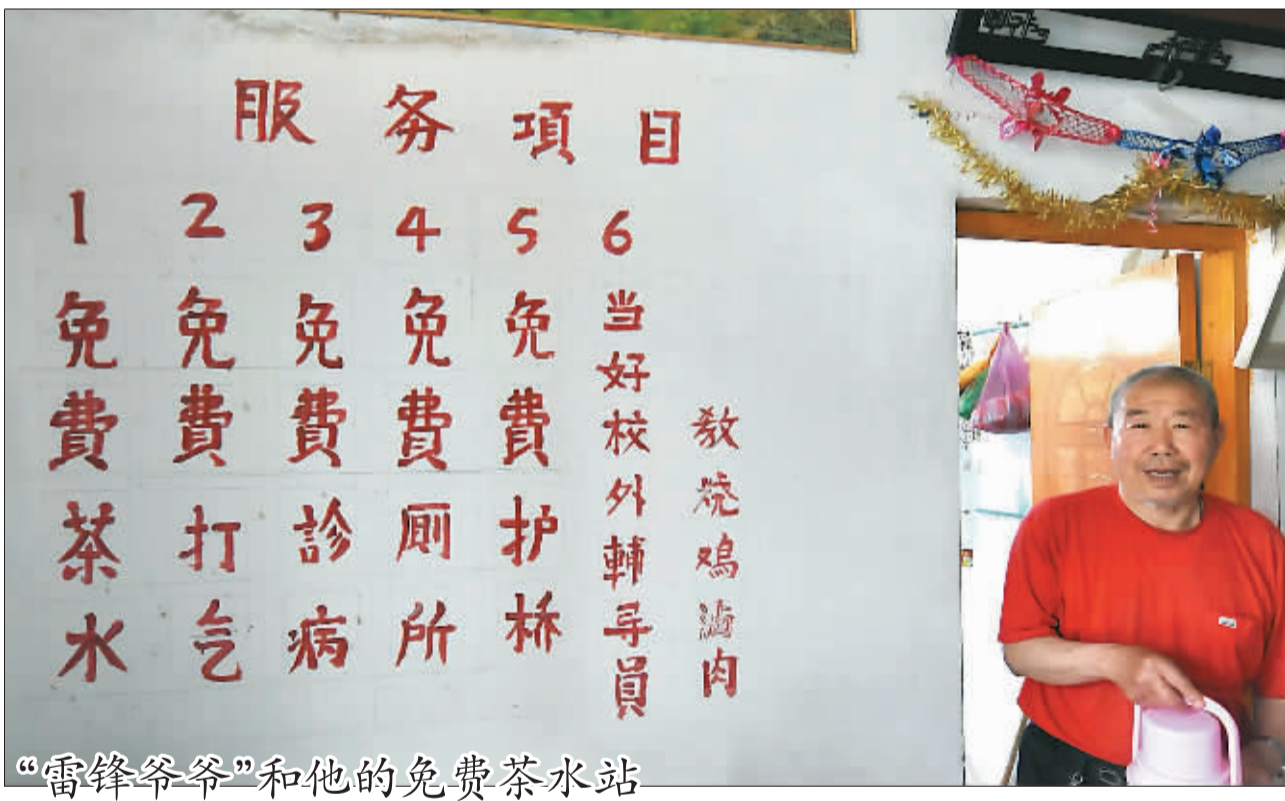 服务項目
1免費茶水
2免費打气
3免費診病
4免費厕所
5免費护桥
6当好校外輔导員
教烧鸡滷肉
“雷锋爷爷”和他的免费茶水站